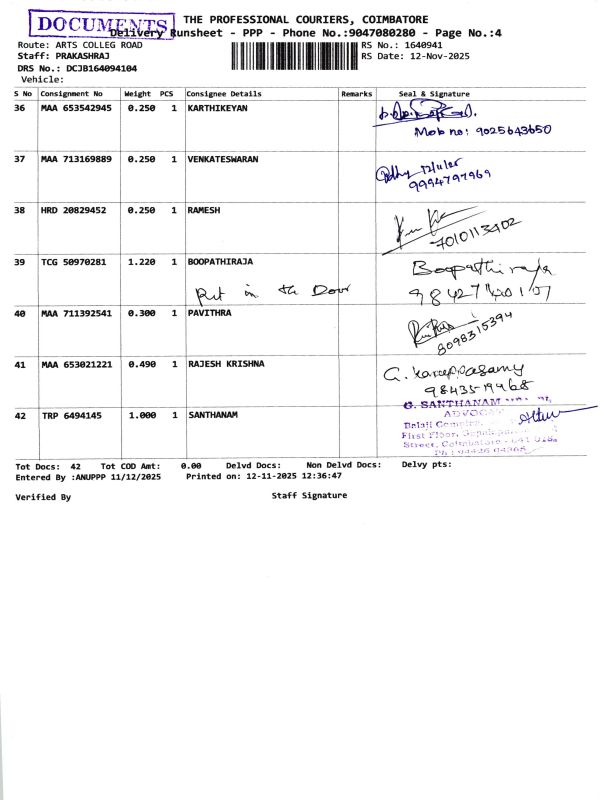 DOCUMENTS
THE PROFESSIONAL COURIERS, COIMBATORE
Delivery Runsheet - PPP - Phone No.:9047080280 - Page No.:4
Route: ARTS COLLEG ROAD RS No.: 1640941
Staff: PRAKASHRAJ RS Date: 12-Nov-2025
DRS No.: DCJB164094104
Vehicle:
S No Consignment No Weight PCS Consignee Details Remarks Seal & Signature
36 MAA 653542945 0.250 1 KARTHIKEYAN
Mob no: 9025643650
37 MAA 713169889 0.250 1 VENKATESWARAN 12/11/25
9994797969
38 HRD 20829452 0.250 1 RAMESH
7010113402
39 TCG 50970281 1.220 1 BOOPATHIRAJA Boopathiraja
Put in the Door
40 MAA 711392541 0.300 1 PAVITHRA
8098315394
41 MAA 653021221 0.490 1 RAJESH KRISHNA G. Karuppasamy
98435-19968
G. SANTHANAM
42 TRP 6494145 1.000 1 SANTHANAM ADVOCATE
Balaji Complex,
First Floor,
Street, Coimbatore - 641 018.
Tot Docs: 42 Tot COD Amt: 0.00 Delvd Docs: Non Delvd Docs: Delvy pts:
Entered By :ANUPPP 11/12/2025 Printed on: 12-11-2025 12:36:47
Verified By Staff Signature